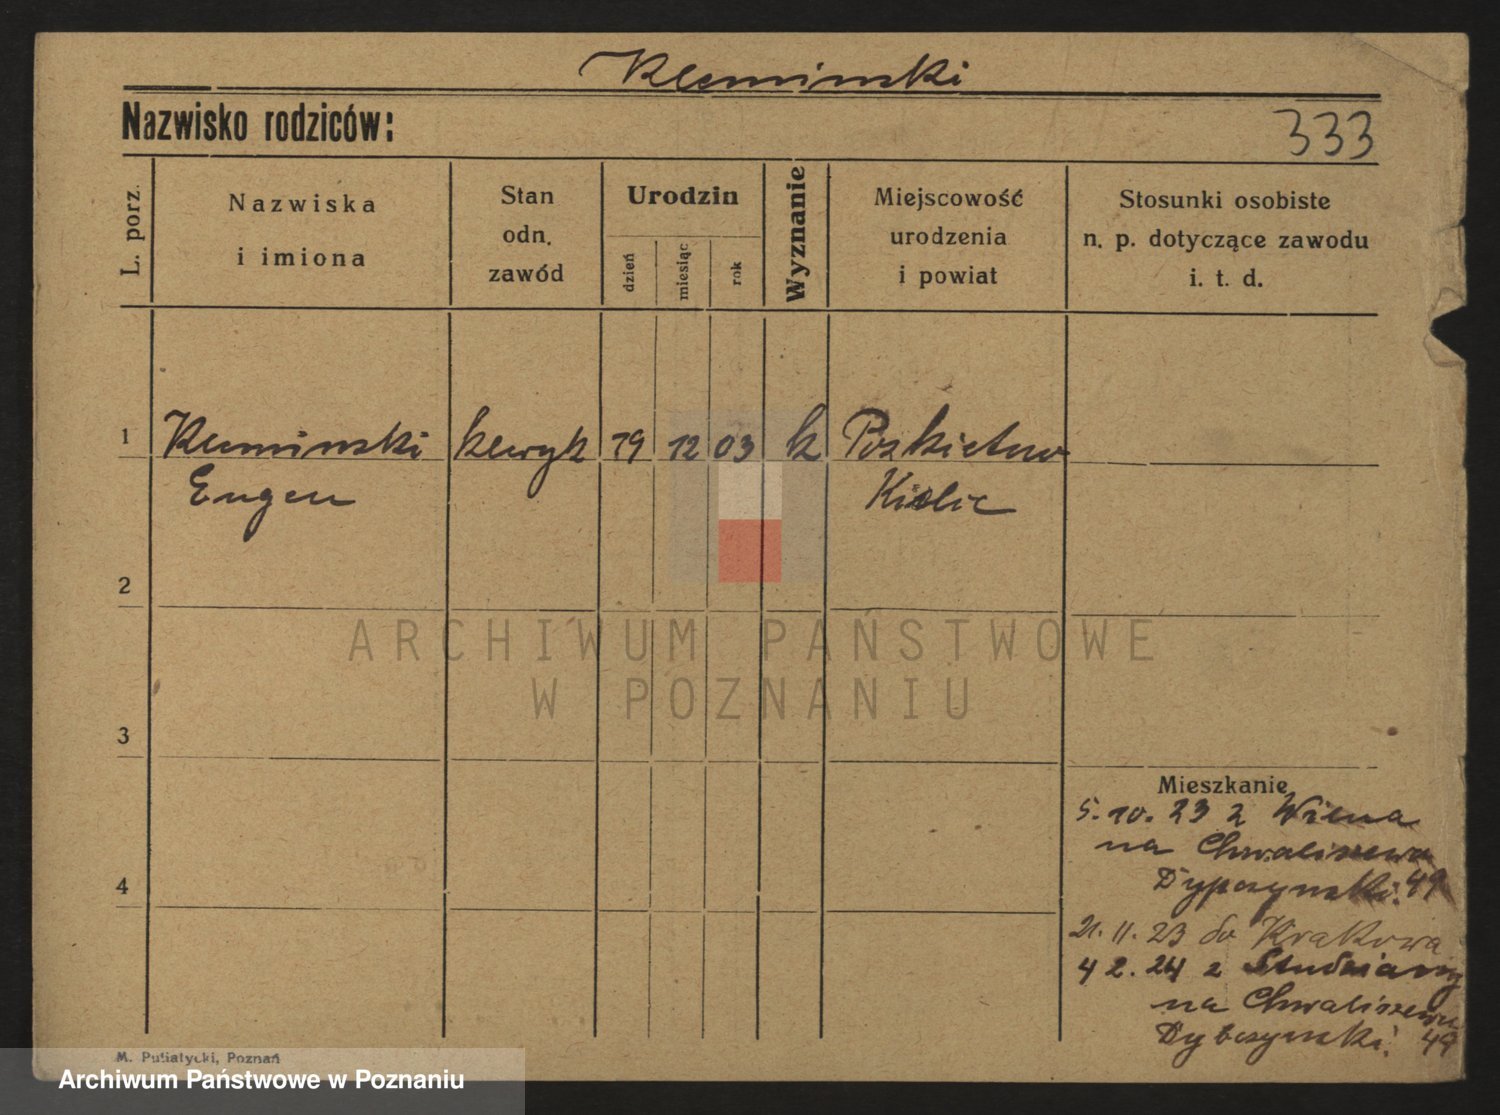 Kleminski
Nazwisko rodziców:
333
L. porz.
Nazwiska
i imiona
Stan
odn.
zawód
Urodzin
dzień
miesiąc
rok
Wyznanie
Miejscowość
urodzenia
i powiat
Stosunki osobiste
n. p. dotyczące zawodu
i. t. d.
1
Kleminski kleryk 19 12 03 k
Eugen Kielic
2
3
4
Mieszkanie
5. 10. 23 z Wilna
na Chwaliszewo
49
21. 11. 23 do Krakowa
4 2. 24 z
na Chwaliszewo
Dybczynski. 49
M. Putiatycki, Poznań
ARCHIWUM PAŃSTWOWE
W POZNANIU
Archiwum Państwowe w Poznaniu